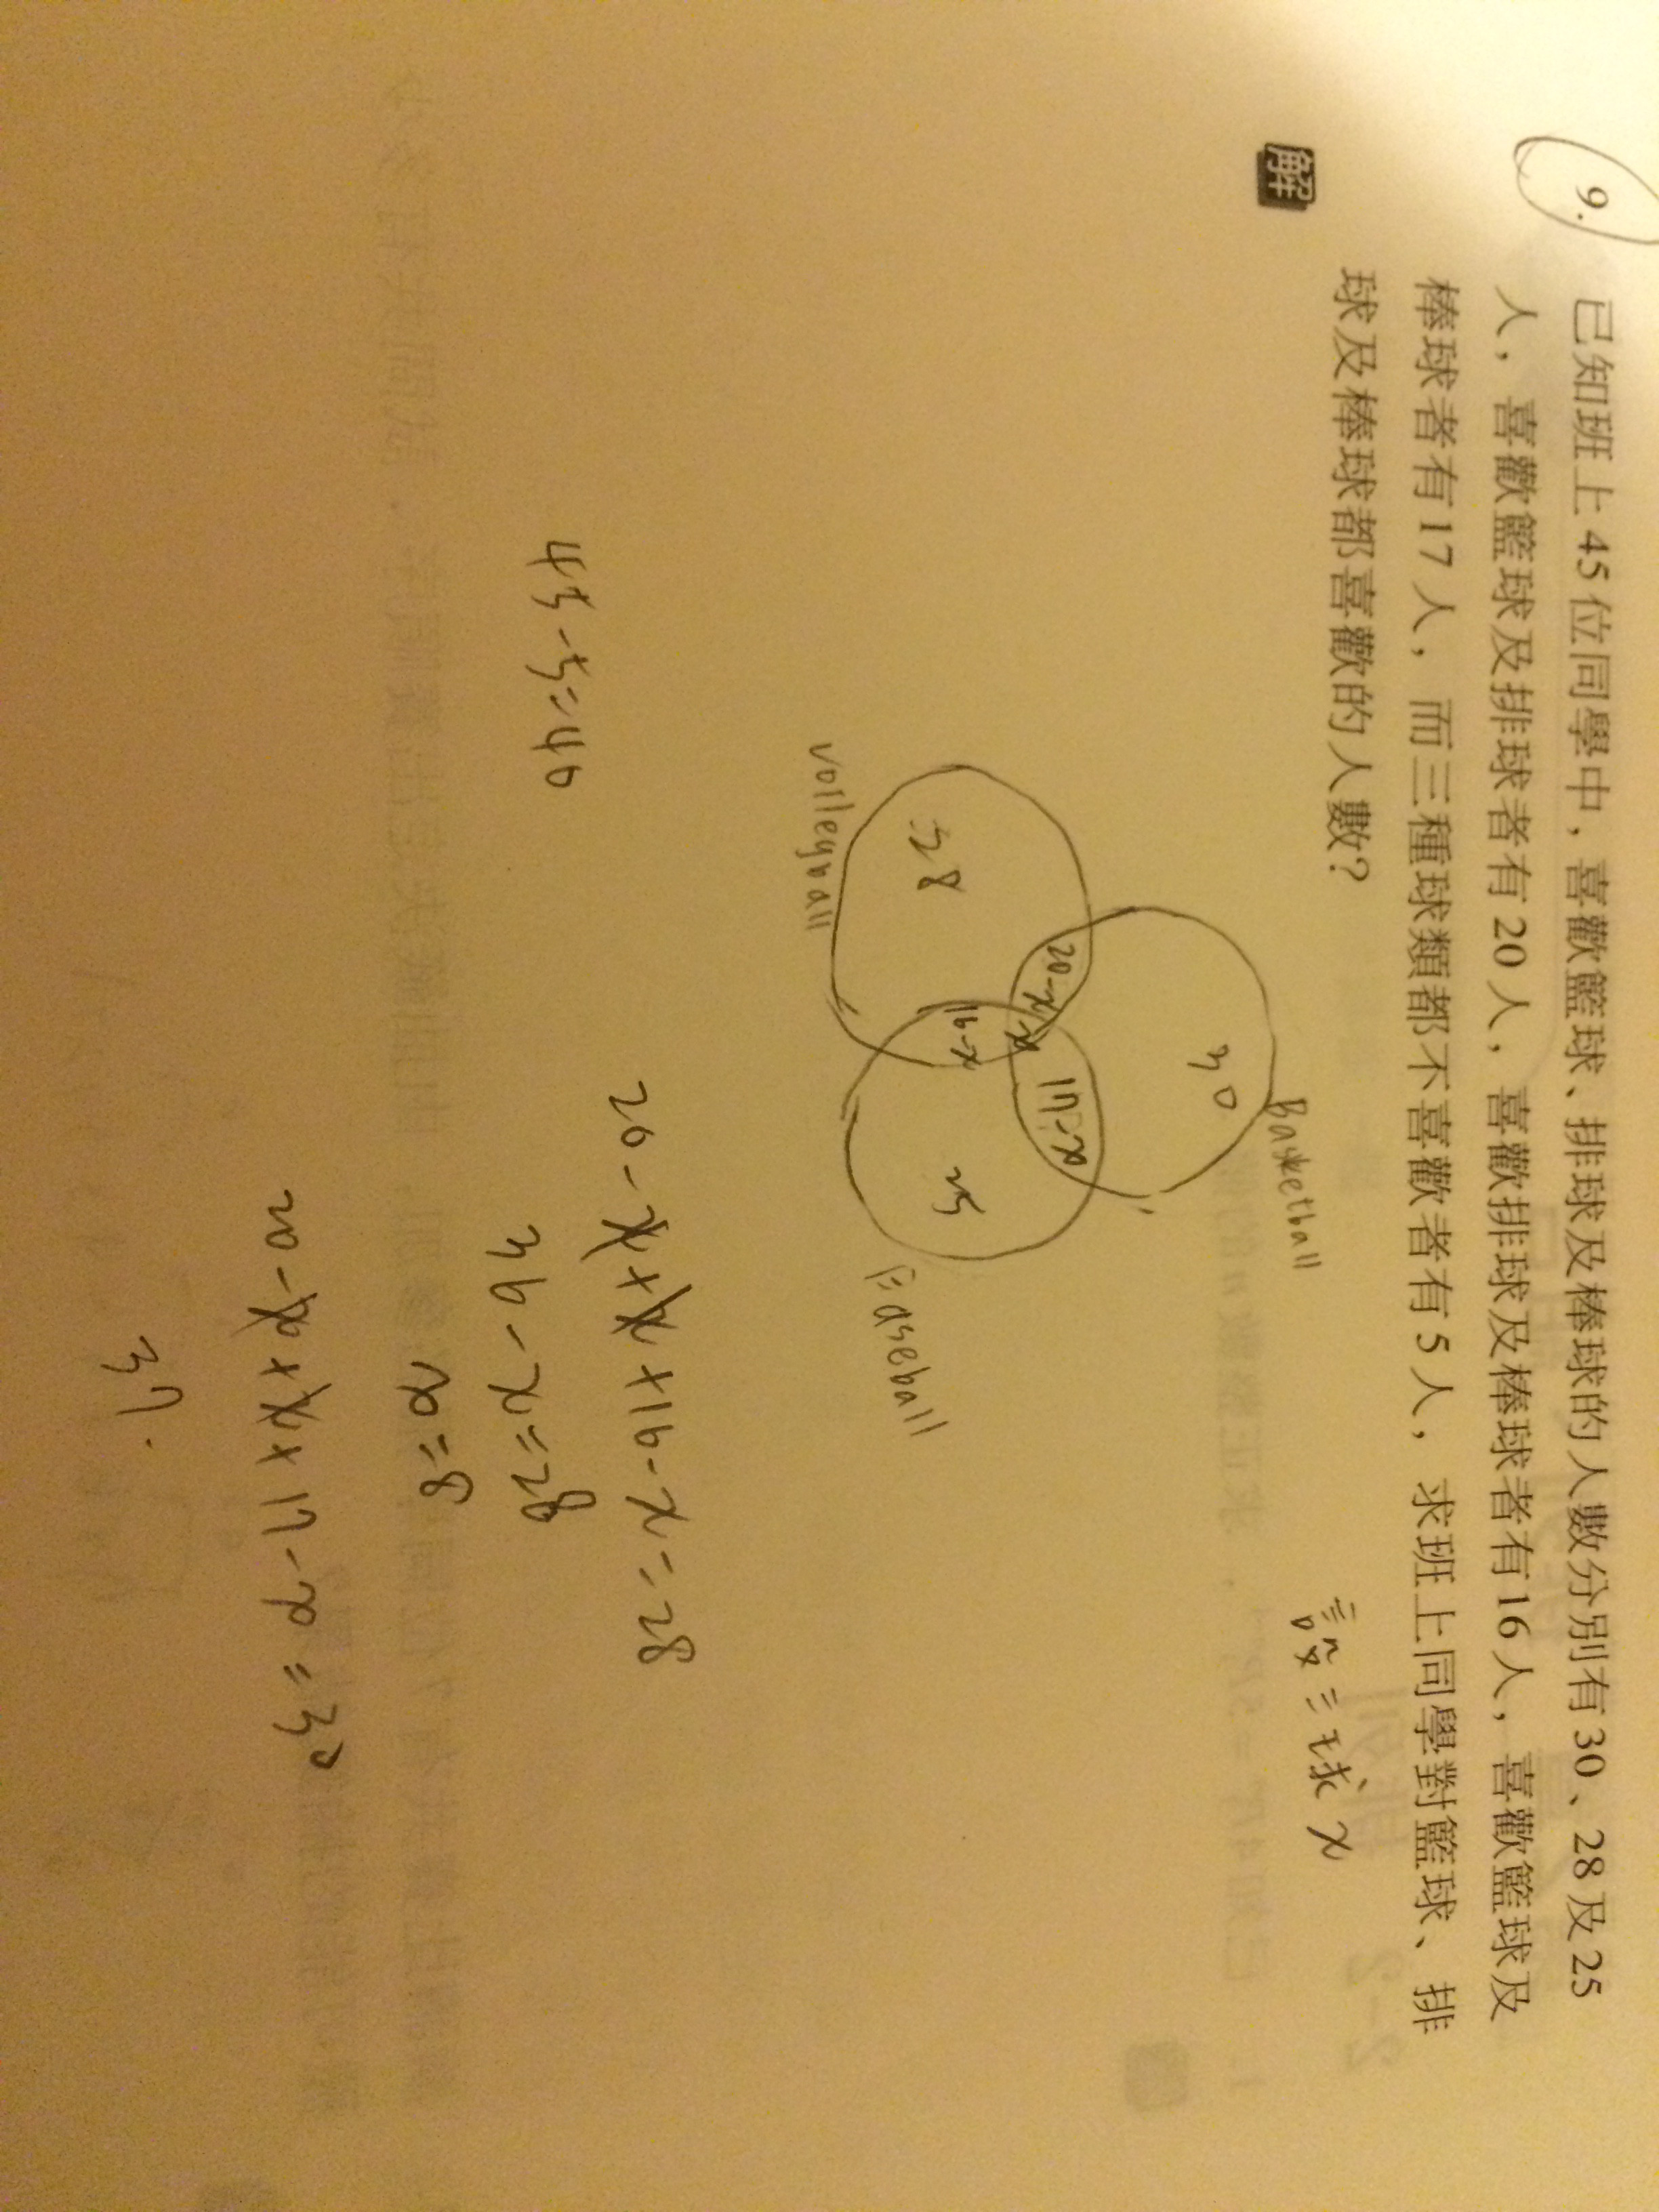 9. 已知班上 45 位同學中，喜歡籃球、排球及棒球的人數分別有 30、28 及 25
人，喜歡籃球及排球者有 20 人，喜歡排球及棒球者有 16 人，喜歡籃球及
棒球者有 17 人，而三種球類都不喜歡者有 5 人，求班上同學對籃球、排
球及棒球都喜歡的人數？
解
設三球 x
Basketball
30
20-x
x
17-x
16-x
28
25
volleyball
Baseball
20-x+x+16-x=28
36-x=28
8=x
45-5=40
20-x+x+17-x=30
37